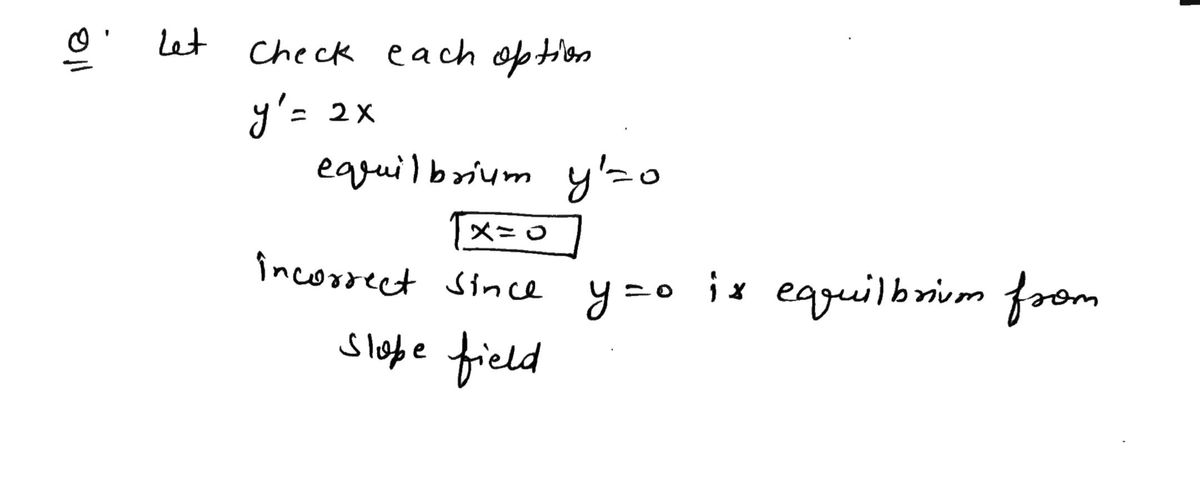 Q. Let check each option
y' = 2x
equilbrium y'=0
x=0
incorrect since y=0 is equilbrium from
slope field